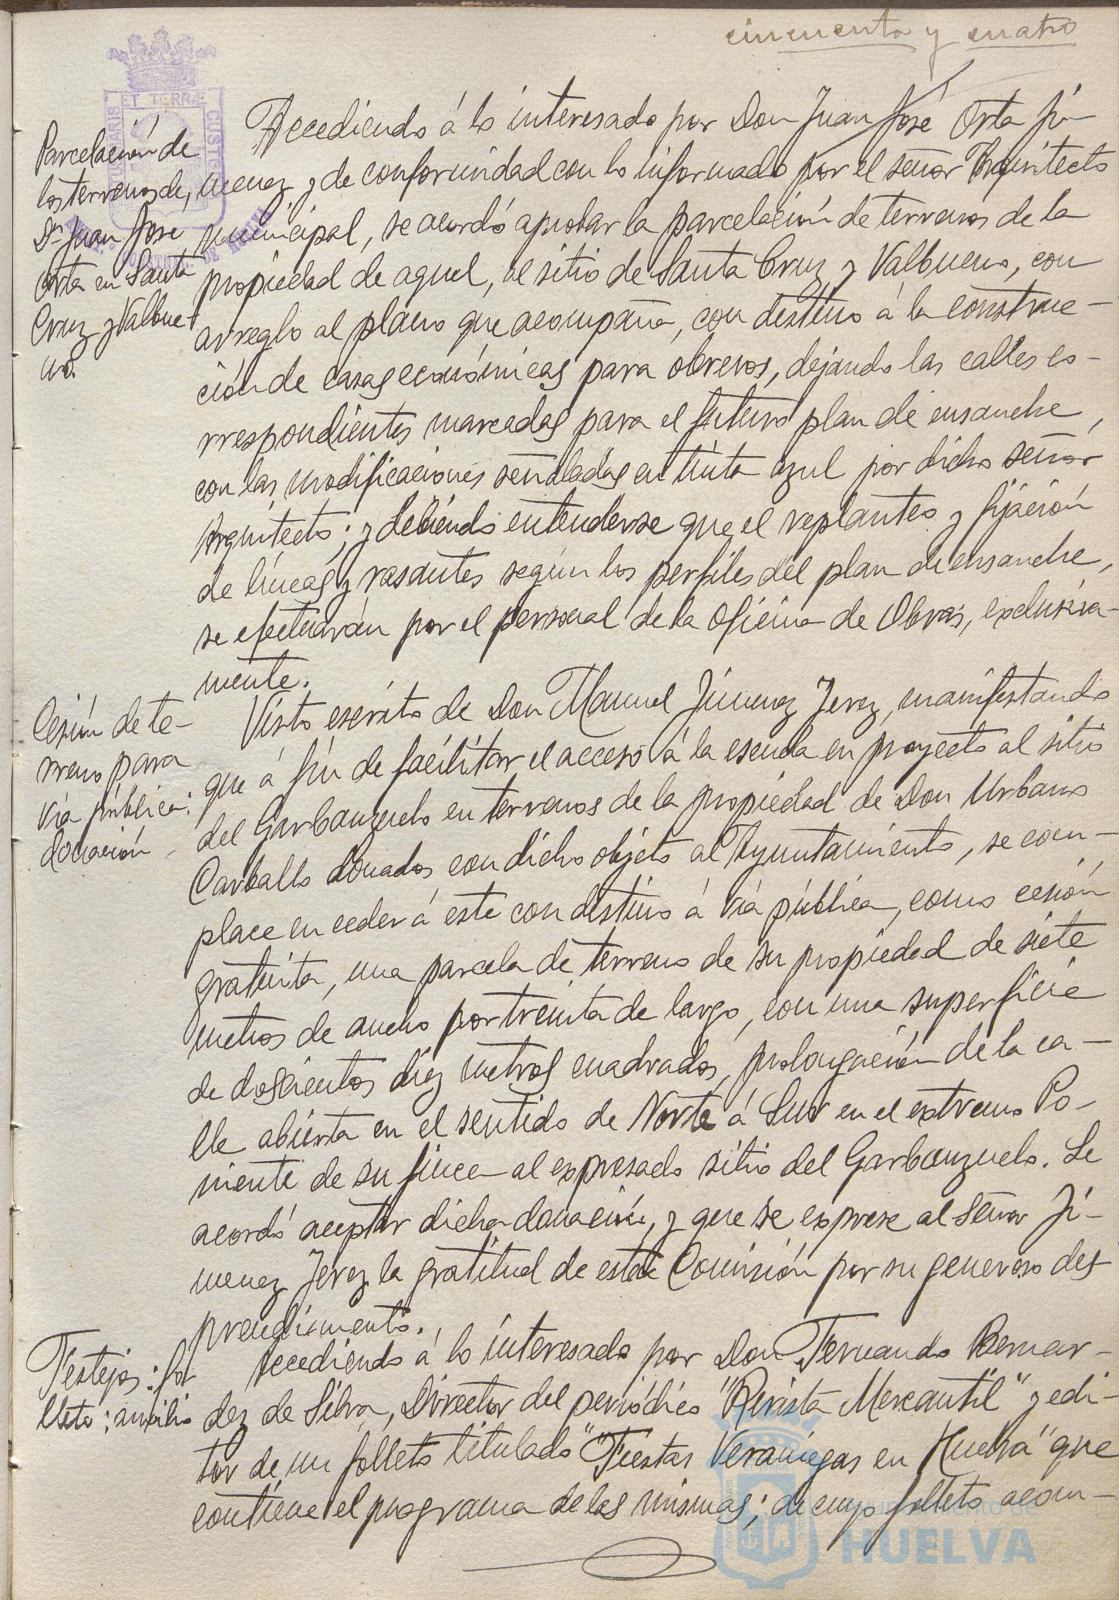 cincuenta y cuatro
Parcelación de
los terrenos de
Dn Juan José
Orta en Santa
Cruz y Valbue-
no.
Accediendo á lo interesado por Don Juan José Orta Ji-
menez y de conformidad con lo informado por el señor Arquitecto
municipal, se acordó aprobar la parcelación de terrenos de la
propiedad de aquel, al sitio de Santa Cruz y Valbueno, con
arreglo al plano que acompaña, con destino á la construc-
ción de casas económicas para obreros, dejando las calles co-
rrespondientes marcadas para el futuro plan de ensanche,
con las modificaciones señaladas en tinta azul por dicho señor
Arquitecto; y debiendo entenderse que el replanteo y fijación
de líneas y rasantes según los perfiles del plan de ensanche,
se efectuarán por el personal de la oficina de Obras, exclusiva-
mente.
Cesión de te-
rreno para
vía pública:
donación
Visto escrito de Don Manuel Jimenez Jerez, manifestando
que á fín de facilitar el acceso á la escuela en proyecto al sitio
del Garbanzuelo en terrenos de la propiedad de Don Urbano
Carballo donados con dicho objeto al Ayuntamiento, se com-
place en ceder á este con destino á vía pública, como cesión
gratuita, una parcela de terreno de su propiedad de siete
metros de ancho por treinta de largo, con una superficie
de doscientos diez metros cuadrados, prolongación de la ca-
lle abierta en el sentido de Norte á Sur en el extremo Po-
niente de su finca al expresado sitio del Garbanzuelo. Se
acordó aceptar dicha donación, y que se exprese al señor Ji-
menez Jerez la gratitud de esta Comisión por su generoso des-
prendimiento.
Festejos: fo-
lleto: auxilio
Accediendo á lo interesado por Don Fernando Bernar-
dez de Silva, Director del periódico "Revista Mercantil" y edi-
tor de un folleto titulado "Fiestas Veraniegas en Huelva" que
contiene el programa de las mismas; de cuyo folleto acom-
Ayuntamiento de
HUELVA